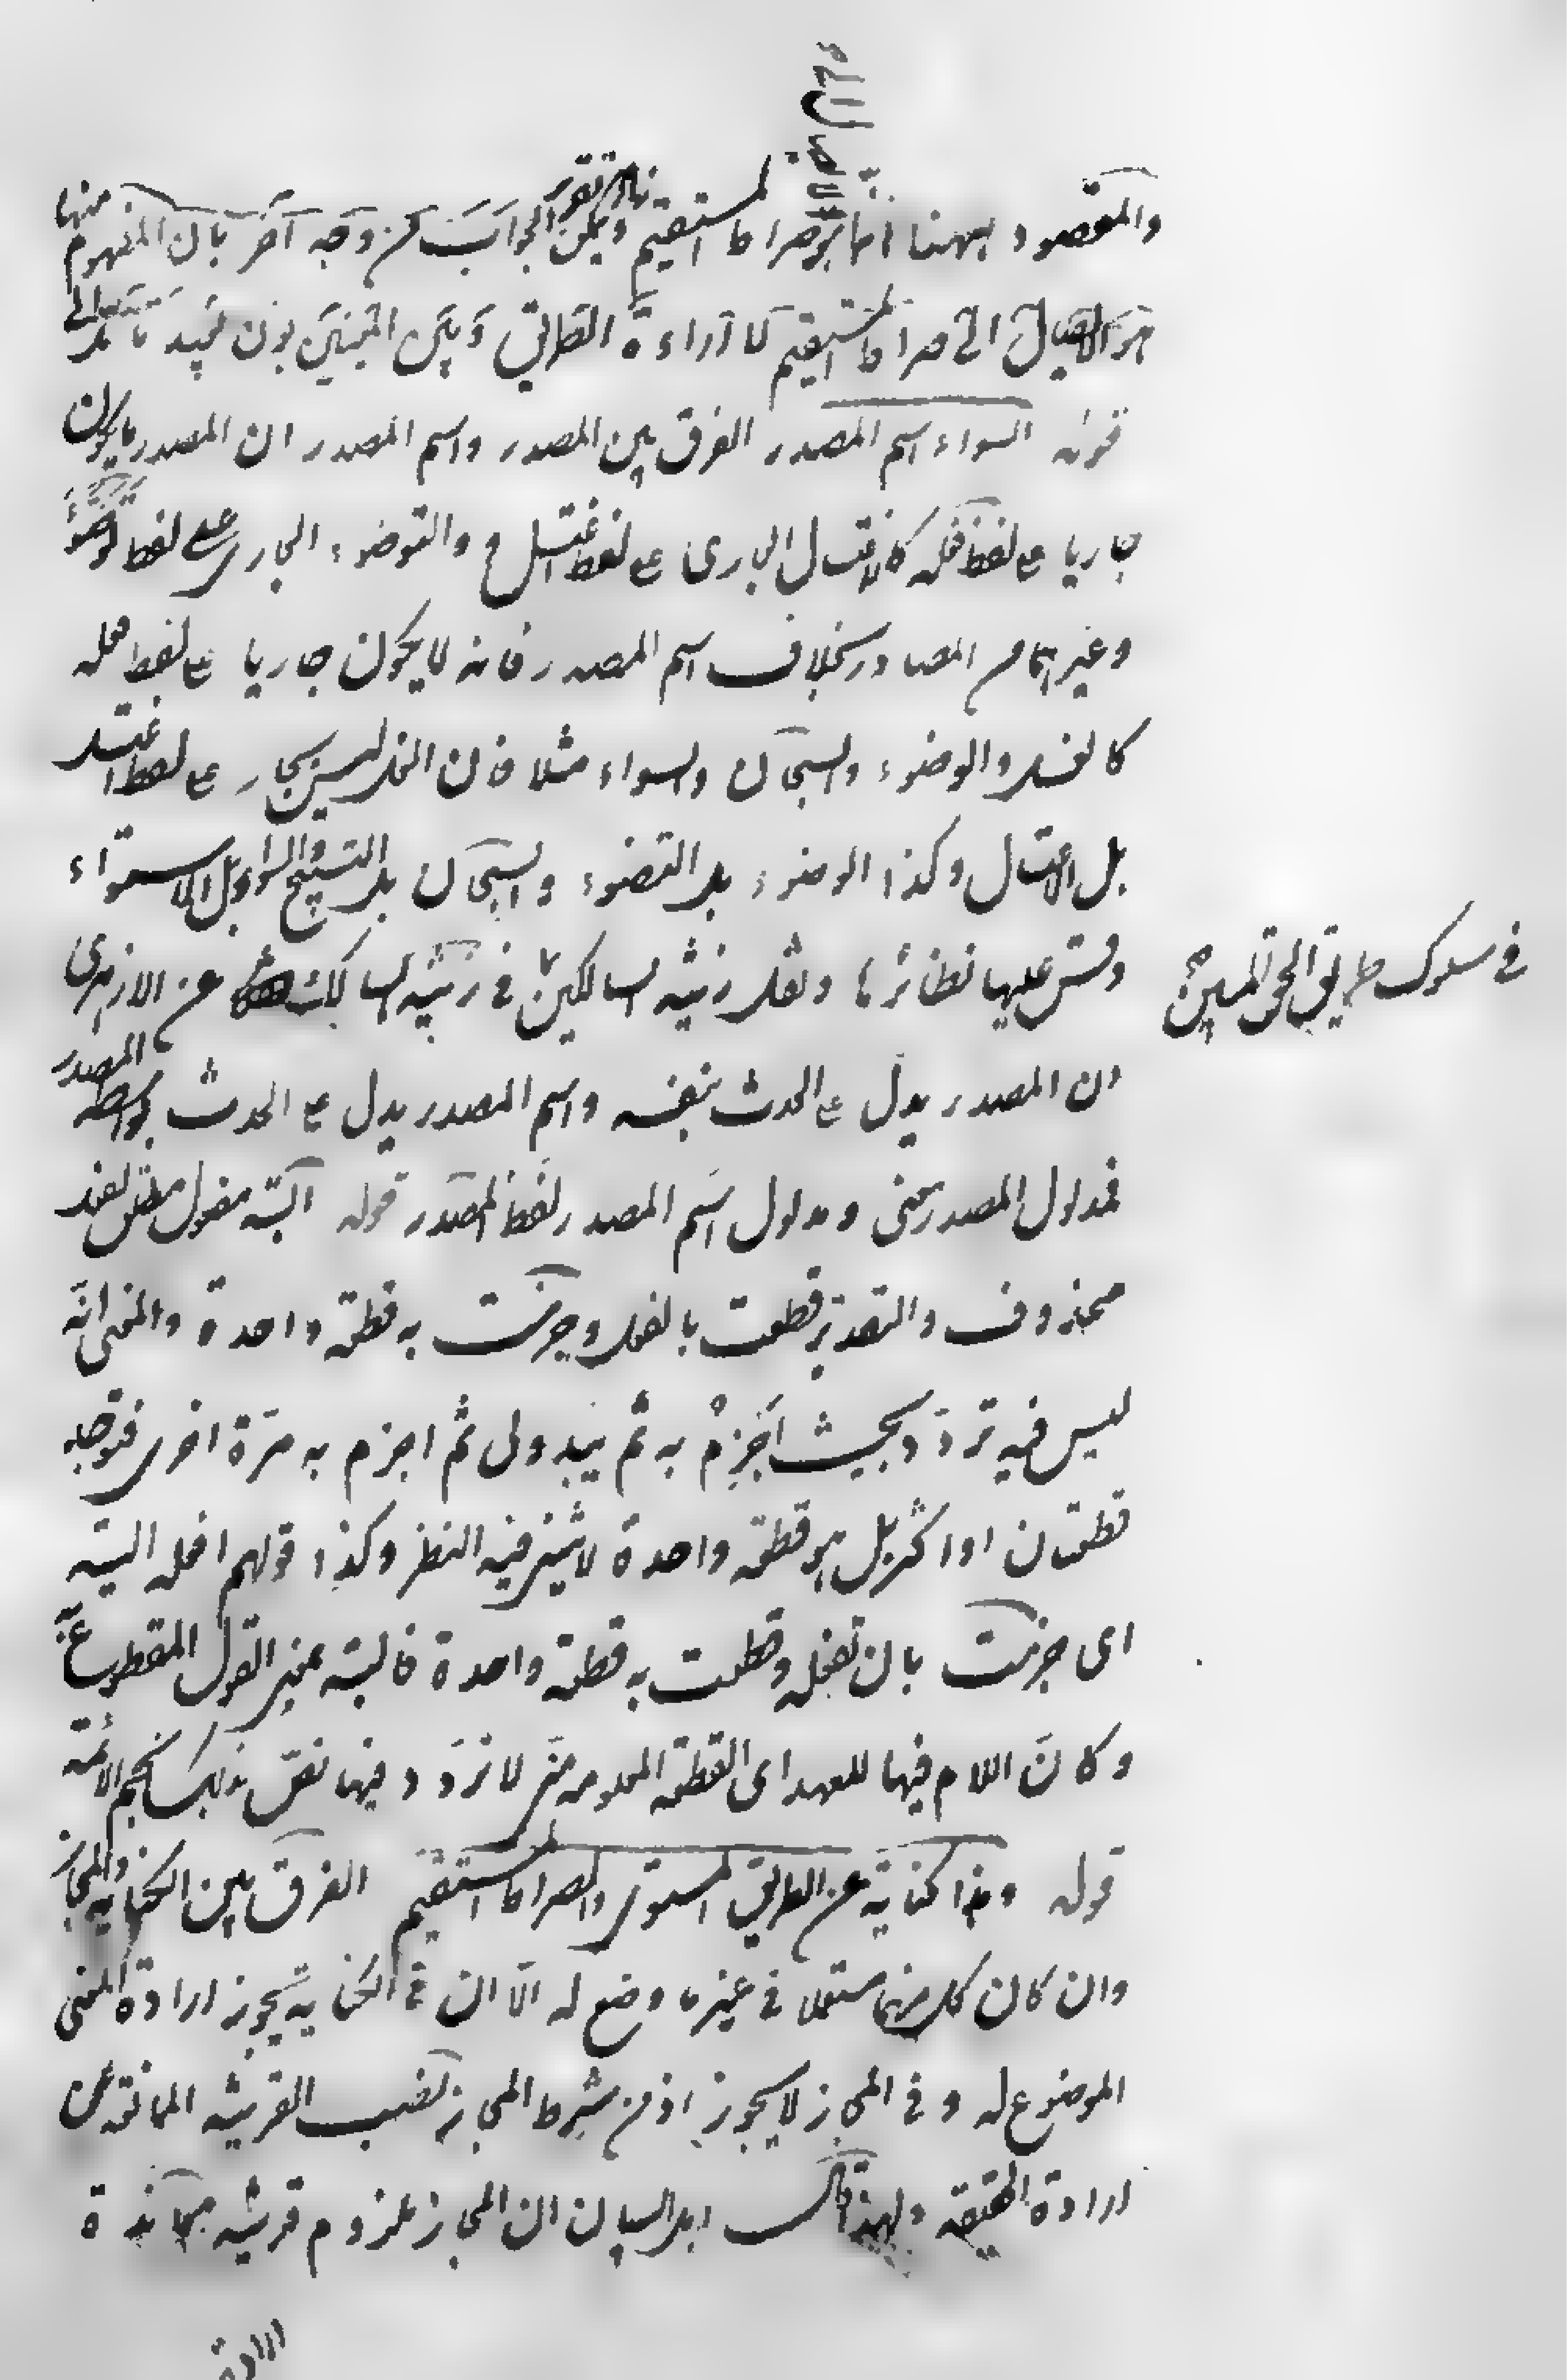 والمقصود ههنا انما هو صراط المستقيم ويمكن الجواب من وجه آخر بان المفهوم منها
هو الايصال الى صراط المستقيم لا اراءة الطريق وبين المعنيين بون بعيد
قوله السواء اسم المصدر الفرق بين المصدر واسم المصدر ان المصدر ما يكون
جاريا على لفظ فعله كالاغتسال الجارى على لفظ اغتسل والتوضوء الجارى على لفظ توضؤ
وغيرهما من المصادر بخلاف اسم المصدر فانه لا يكون جاريا على لفظ فعله
كالغسل والوضوء والسبحان والسواء مثلا فان الغسل ليس بجار على لفظ اغتسل
بل الاغتسال وكذا الوضوء بل التوضوء والسبحان بل التسبيح والسواء بل الاستواء
وقس عليها نظائرها ونقل زينة السالكين فى زينة السالك عن الازهرى
فى سلوك طريق الحق المبين
ان المصدر يدل على الحدث بنفسه واسم المصدر يدل على الحدث بواسطة المصدر
فمدلول المصدر معنى ومدلول اسم المصدر لفظ المصدر قوله البتة مفعول مطلق لفعل
محذوف والتقدير قطعت بالفعل وجزمت به قطعة واحدة والمعنى انه
ليس فيه تردد بحيث اجزم به ثم يبدو لى ثم اجزم به مرة اخرى فتوجد
قطعتان او اكثر بل هو قطعة واحدة لا يثنى فيه النظر وكذا قولهم افعله البتة
اى جزمت بان تفعله وقطعت به قطعة واحدة فالبتة بمعنى القول المقطوع به
وكان اللام فيها للعهد اى القطعة المعلومة منى لا تردد فيها نص بذلك نجم الائمة
قوله وهذا كناية عن الطريق المستوى والصراط المستقيم الفرق بين الكناية والمجاز
وان كان كل منهما مستعملا فى غير ما وضع له الا ان فى الكناية يجوز ارادة المعنى
الموضوع له وفى المجاز لا يجوز اذ من شرط المجاز نصب القرينة المانعة عن
ارادة الحقيقة ولهذا قالت اهل البيان ان المجاز ملزوم قرينة معاندة